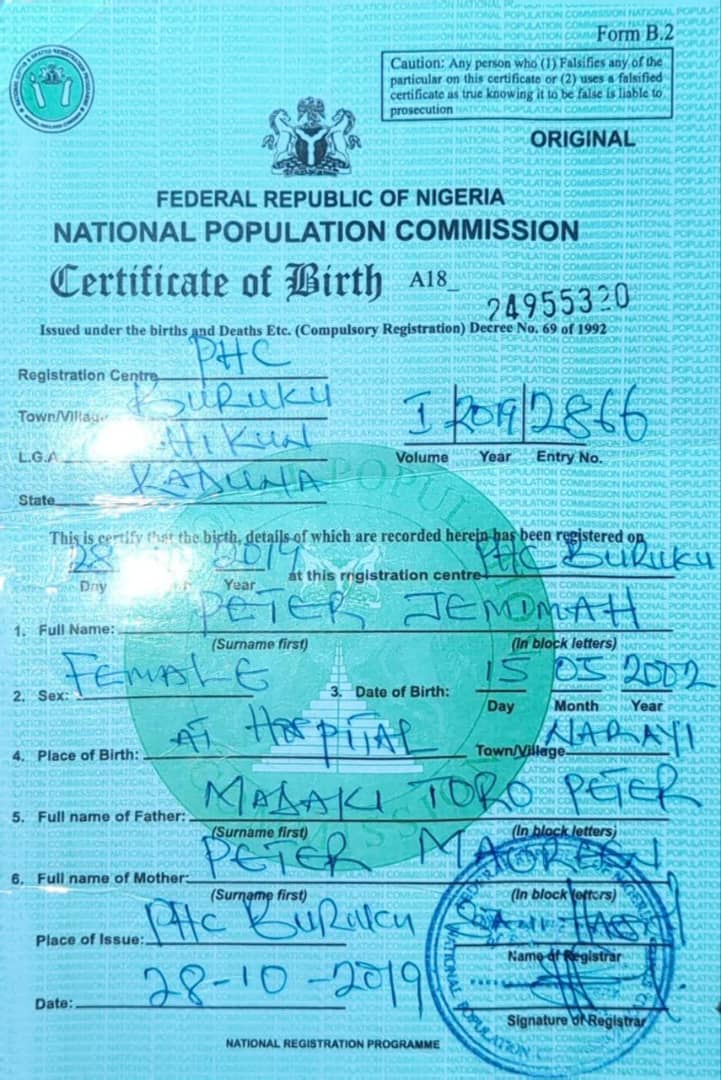 Form B.2
Caution: Any person who (1) Falsifies any of the
particular on this certificate or (2) uses a falsified
certificate as true knowing it to be false is liable to
prosecution
ORIGINAL
FEDERAL REPUBLIC OF NIGERIA
NATIONAL POPULATION COMMISSION
Certificate of Birth A18_ 24955320
Issued under the births and Deaths Etc. (Compulsory Registration) Decree No. 69 of 1992
Registration Centre PHC
Town/Village BURUKU
I 2019 2866
Volume Year Entry No.
L.G.A HIKUN
State KADUNA
This is certify that the birth, details of which are recorded herein has been registered on
28 2019 at this registration centre PHC BURUKU
Day Year
1. Full Name: PETER JEMIMAH
(Surname first) (In block letters)
2. Sex: FEMALE 3. Date of Birth: 15 05 2002
Day Month Year
4. Place of Birth: AT HOSPITAL Town/Village NARAYI
5. Full name of Father: MADAKI TORO PETER
(Surname first) (In block letters)
6. Full name of Mother: PETER MAGREEN
(Surname first) (In block letters)
Place of Issue: PHC BURUKU
Name of Registrar
Date: 28-10-2019
Signature of Registrar
NATIONAL REGISTRATION PROGRAMME